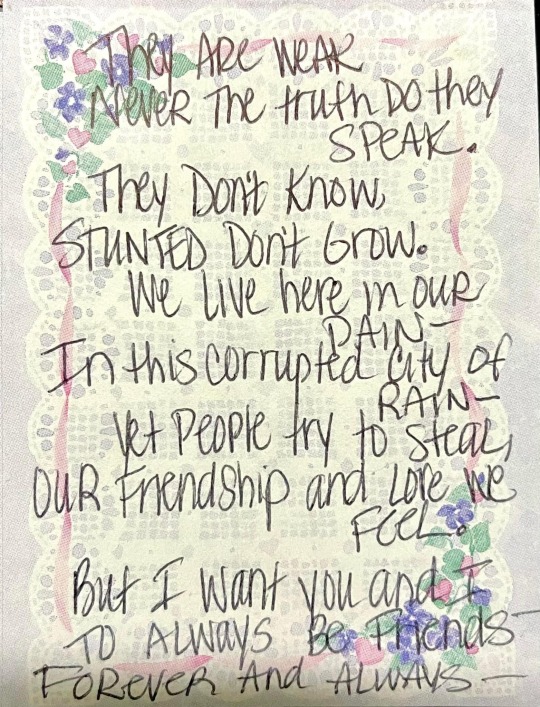 They ARE WEAK
NEVER The truth DO they
SPEAK.
They Don't Know,
STUNTED Don't Grow.
We Live here in OUR
PAIN-
In this corrupted City of
RAIN-
Yet People try to Steal,
OUR Friendship and Love We
FEEL.
But I Want you and I
TO ALWAYS Be Friends-
FOREVER And ALWAYS-